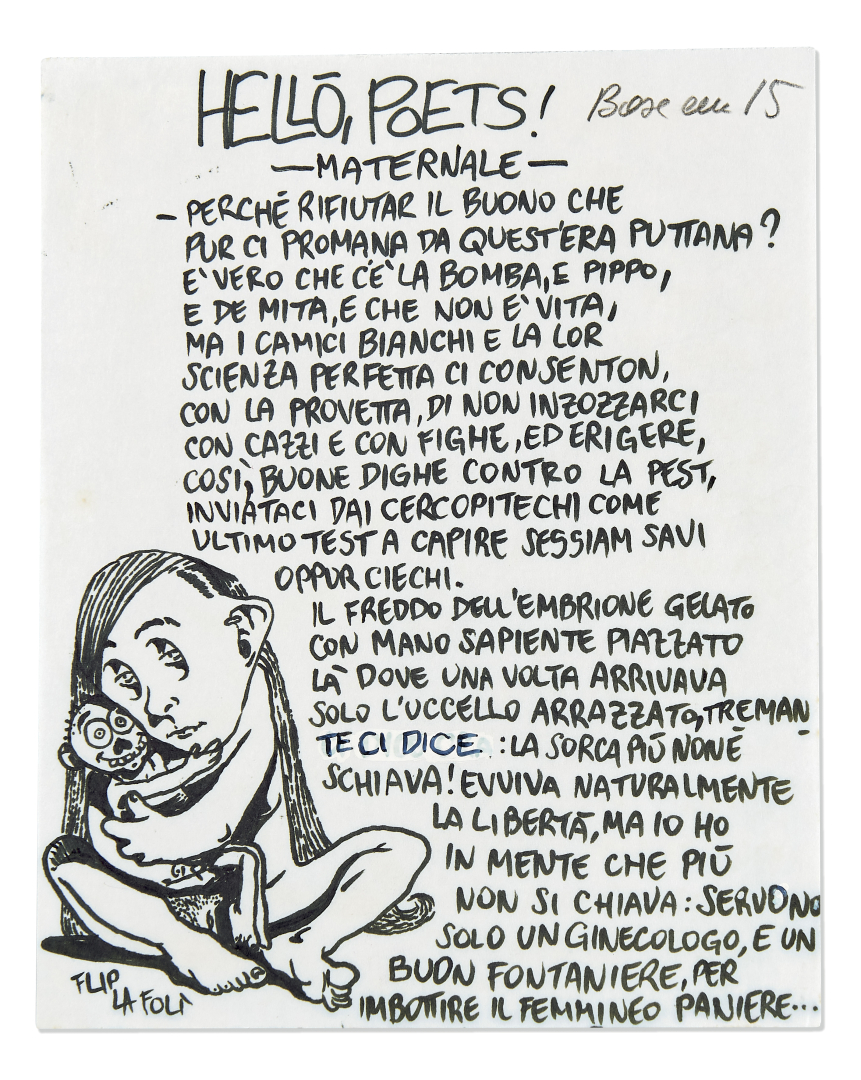 HELLŌ, POETS!
Base cm 15
—MATERNALE—
– PERCHÉ RIFIUTAR IL BUONO CHE
PUR CI PROMANA DA QUEST'ERA PUTTANA?
E' VERO CHE C'E' LA BOMBA, E PIPPO,
E DE MITA, E CHE NON E' VITA,
MA I CAMICI BIANCHI E LA LOR
SCIENZA PERFETTA CI CONSENTON,
CON LA PROVETTA, DI NON INZOZZARCI
CON CAZZI E CON FIGHE, ED ERIGERE,
COSÌ, BUONE DIGHE CONTRO LA PEST,
INVIATACI DAI CERCOPITECHI COME
ULTIMO TEST A CAPIRE SESSIAM SAVI
OPPUR CIECHI.
IL FREDDO DELL'EMBRIONE GELATO
CON MANO SAPIENTE PIAZZATO
LÀ DOVE UNA VOLTA ARRIVAVA
SOLO L'UCCELLO ARRAZZATO, TREMAN
TE CI DICE: LA SORCA PIÚ NON É
SCHIAVA! EVVIVA NATURALMENTE
LA LIBERTÀ, MA IO HO
IN MENTE CHE PIÚ
NON SI CHIAVA: SERVONO
SOLO UN GINECOLOGO, E UN
BUON FONTANIERE, PER
IMBOTTIRE IL FEMMINEO PANIERE...
FLIP
LA FOLÌ